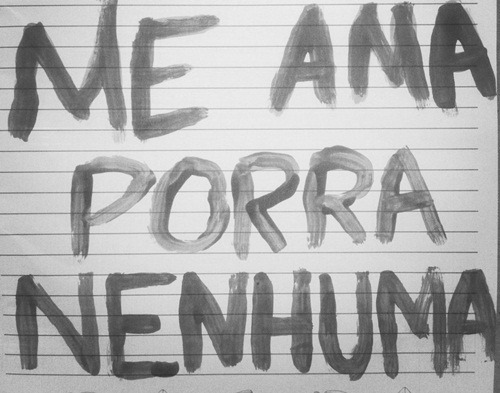 ME ANA
PORRA
NENHUMA